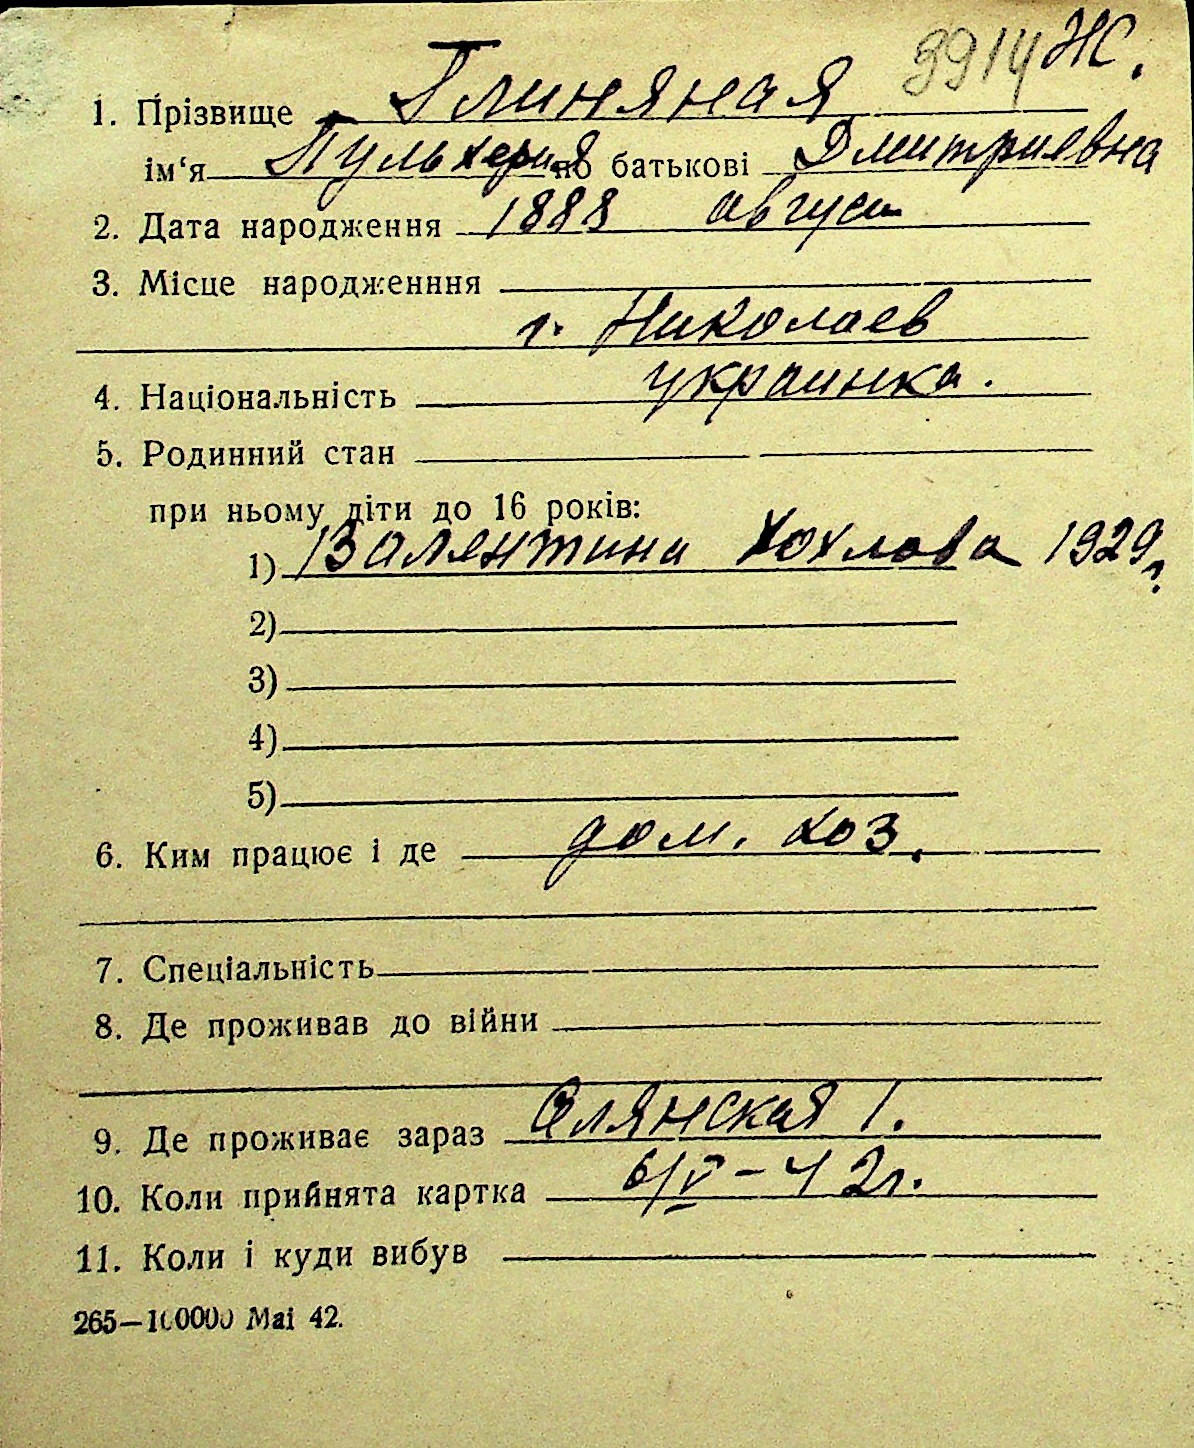 3914 Ж.
1. Прізвище Глиняная
ім‘я Пульхерия по батькові Дмитриевна
2. Дата народження 1888 август
3. Місце народженння
г. Николаев
4. Національність украинка.
5. Родинний стан
при ньому діти до 16 років:
1) Валентина Хохлова 1929 г.
2)
3)
4)
5)
6. Ким працює і де дом. хоз.
7. Спеціальність
8. Де проживав до війни
9. Де проживає зараз 1.
10. Коли прийнята картка 6/V – 42 г.
11. Коли і куди вибув
265—100000 Mai 42.